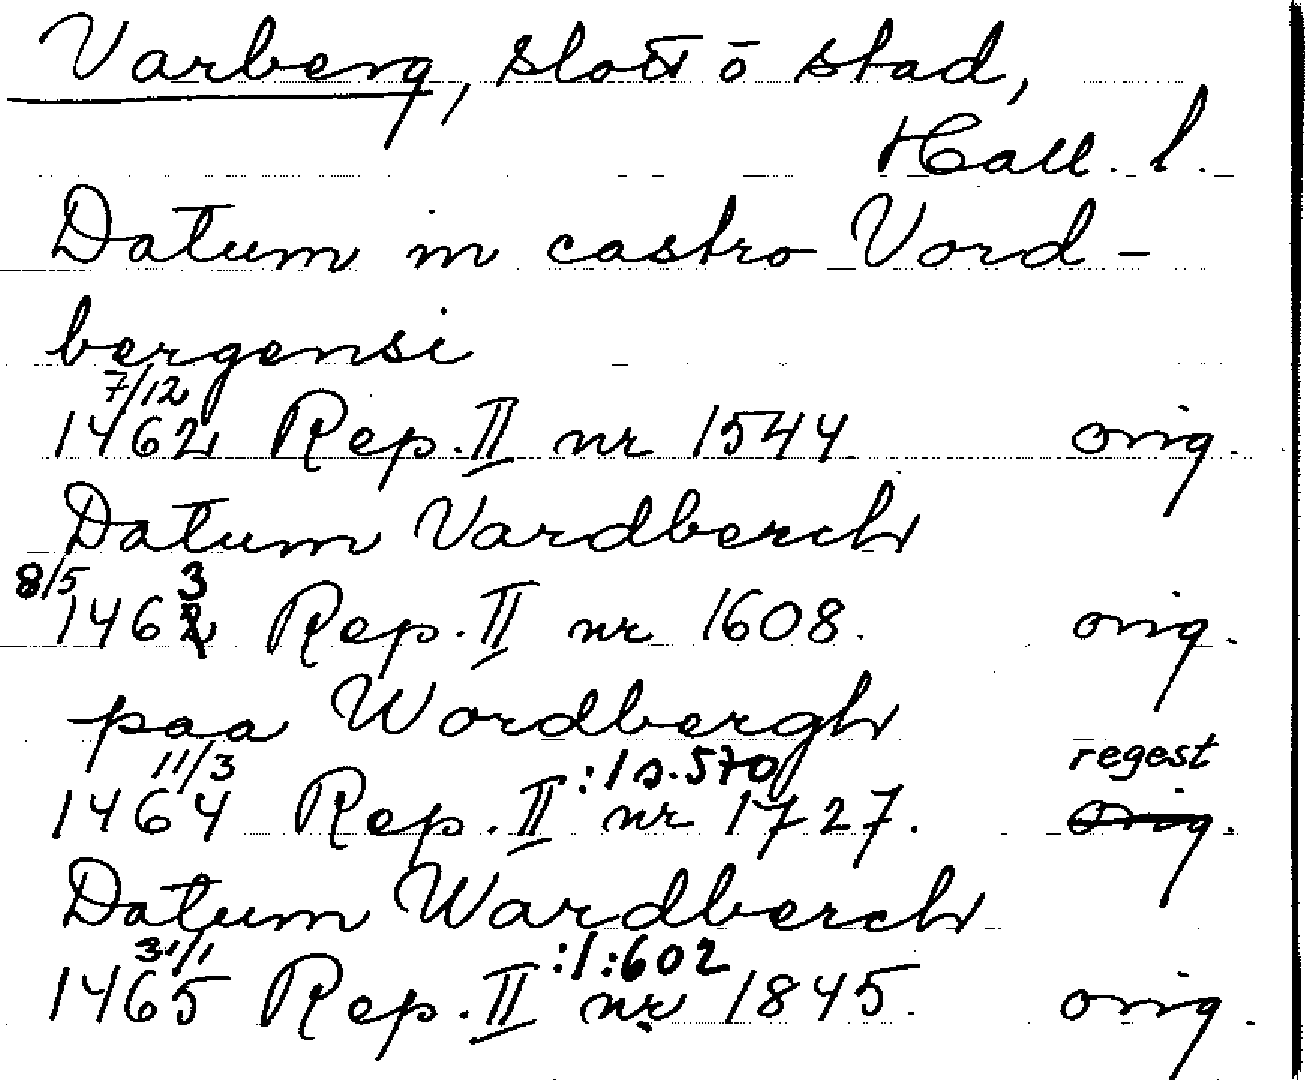 Varberg, slott o stad,
Hall. l.
Datum in castro Vord-
bergensi
7/12
1462 Rep. II nr 1544 orig.
Datum Vardberch
8/5 3
1462 Rep. II nr 1608. orig.
paa Wordbergh
11/3 :1 s. 570 regest
1464 Rep. II nr 1727. orig.
Datum Wardberch
31/1 :1:602
1465 Rep. II nr 1845. orig.